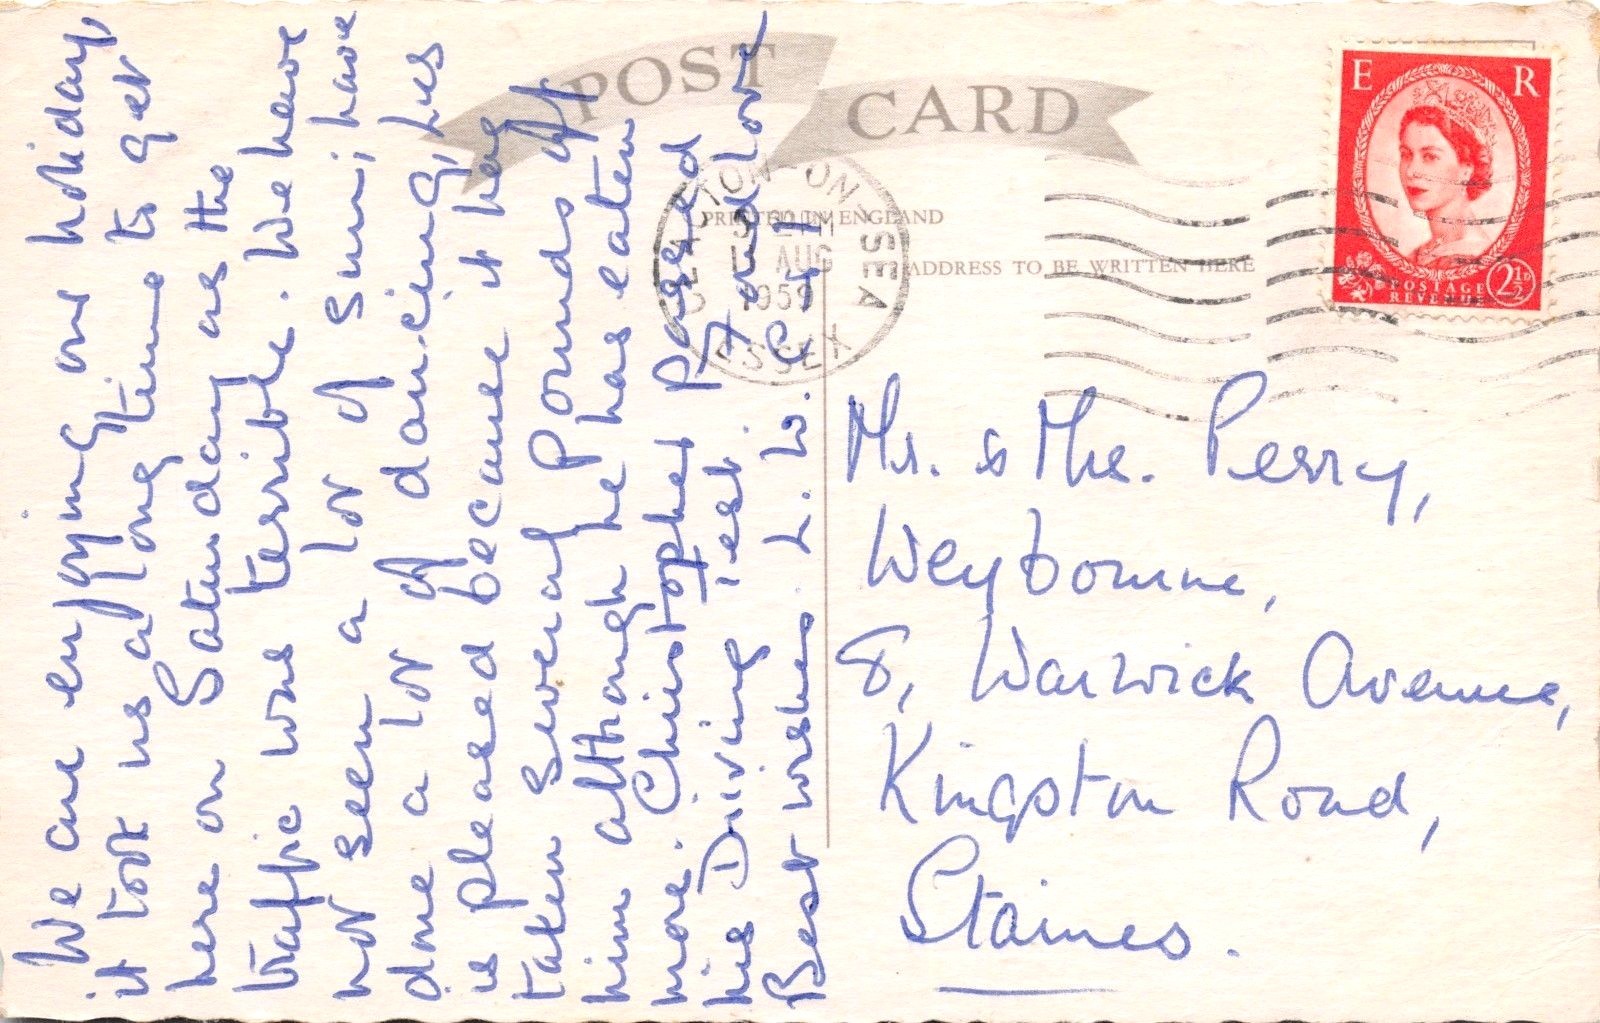 POST CARD
PRINTED IN ENGLAND
ADDRESS TO BE WRITTEN HERE
CLACTON-ON-SEA
AUG
1959
ESSEX
E R
POSTAGE
REVENUE
2½D
We are enjoying our holiday,
it took us a long time to get
here on Saturday as the
traffic was terrible. We have
not seen a lot of sun; have
done a lot of dancing, Les
is pleased because it has
taken several pounds off
him although he has eaten
more. Christopher passed
his Driving Test. Fond love
Best wishes. L. W.
Mr. & Mrs. Perry,
Weybourne,
8, Warwick Avenue,
Kingston Road,
Staines.